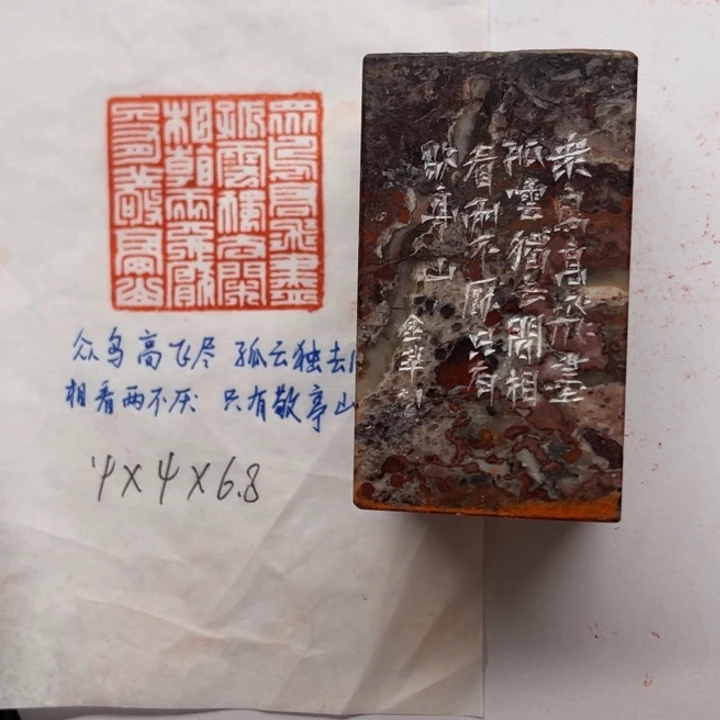 眾鳥高飛盡
孤雲獨去閑
相看兩不厭
只有敬亭山
众鸟高飞尽 孤云独去
相看两不厌 只有敬亭山
4×4×6.8
衆鳥高飛盡
孤雲獨去閒相
看兩不厭只有
敬亭山